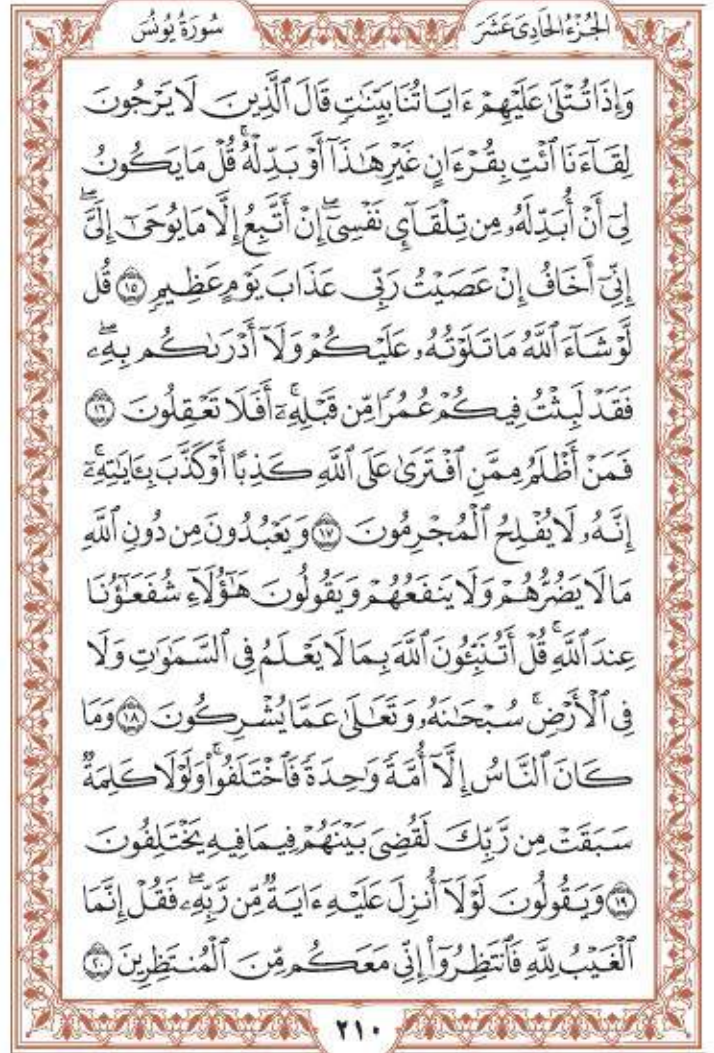 الجُزْءُ الحَادِي عَشَرَ سُورَةُ يُونُسَ
وَإِذَا تُتْلَىٰ عَلَيْهِمْ ءَايَاتُنَا بَيِّنَٰتٍ قَالَ ٱلَّذِينَ لَا يَرْجُونَ
لِقَآءَنَا ٱئْتِ بِقُرْءَانٍ غَيْرِ هَٰذَآ أَوْ بَدِّلْهُ ۚ قُلْ مَا يَكُونُ
لِىٓ أَنْ أُبَدِّلَهُۥ مِن تِلْقَآئِ نَفْسِىٓ ۖ إِنْ أَتَّبِعُ إِلَّا مَا يُوحَىٰٓ إِلَىَّ ۖ
إِنِّىٓ أَخَافُ إِنْ عَصَيْتُ رَبِّى عَذَابَ يَوْمٍ عَظِيمٍ ١٥ قُل
لَّوْ شَآءَ ٱللَّهُ مَا تَلَوْتُهُۥ عَلَيْكُمْ وَلَآ أَدْرَىٰكُم بِهِۦ ۖ
فَقَدْ لَبِثْتُ فِيكُمْ عُمُرًا مِّن قَبْلِهِۦٓ ۚ أَفَلَا تَعْقِلُونَ ١٦
فَمَنْ أَظْلَمُ مِمَّنِ ٱفْتَرَىٰ عَلَى ٱللَّهِ كَذِبًا أَوْ كَذَّبَ بِـَٔايَٰتِهِۦٓ ۚ
إِنَّهُۥ لَا يُفْلِحُ ٱلْمُجْرِمُونَ ١٧ وَيَعْبُدُونَ مِن دُونِ ٱللَّهِ
مَا لَا يَضُرُّهُمْ وَلَا يَنفَعُهُمْ وَيَقُولُونَ هَٰٓؤُلَآءِ شُفَعَٰٓؤُنَا
عِندَ ٱللَّهِ ۚ قُلْ أَتُنَبِّـُٔونَ ٱللَّهَ بِمَا لَا يَعْلَمُ فِى ٱلسَّمَٰوَٰتِ وَلَا
فِى ٱلْأَرْضِ ۚ سُبْحَٰنَهُۥ وَتَعَٰلَىٰ عَمَّا يُشْرِكُونَ ١٨ وَمَا
كَانَ ٱلنَّاسُ إِلَّآ أُمَّةً وَٰحِدَةً فَٱخْتَلَفُوا۟ ۚ وَلَوْلَا كَلِمَةٌ
سَبَقَتْ مِن رَّبِّكَ لَقُضِىَ بَيْنَهُمْ فِيمَا فِيهِ يَخْتَلِفُونَ
١٩ وَيَقُولُونَ لَوْلَآ أُنزِلَ عَلَيْهِ ءَايَةٌ مِّن رَّبِّهِۦ ۖ فَقُلْ إِنَّمَا
ٱلْغَيْبُ لِلَّهِ فَٱنتَظِرُوٓا۟ إِنِّى مَعَكُم مِّنَ ٱلْمُنتَظِرِينَ ٢٠
٢١٠